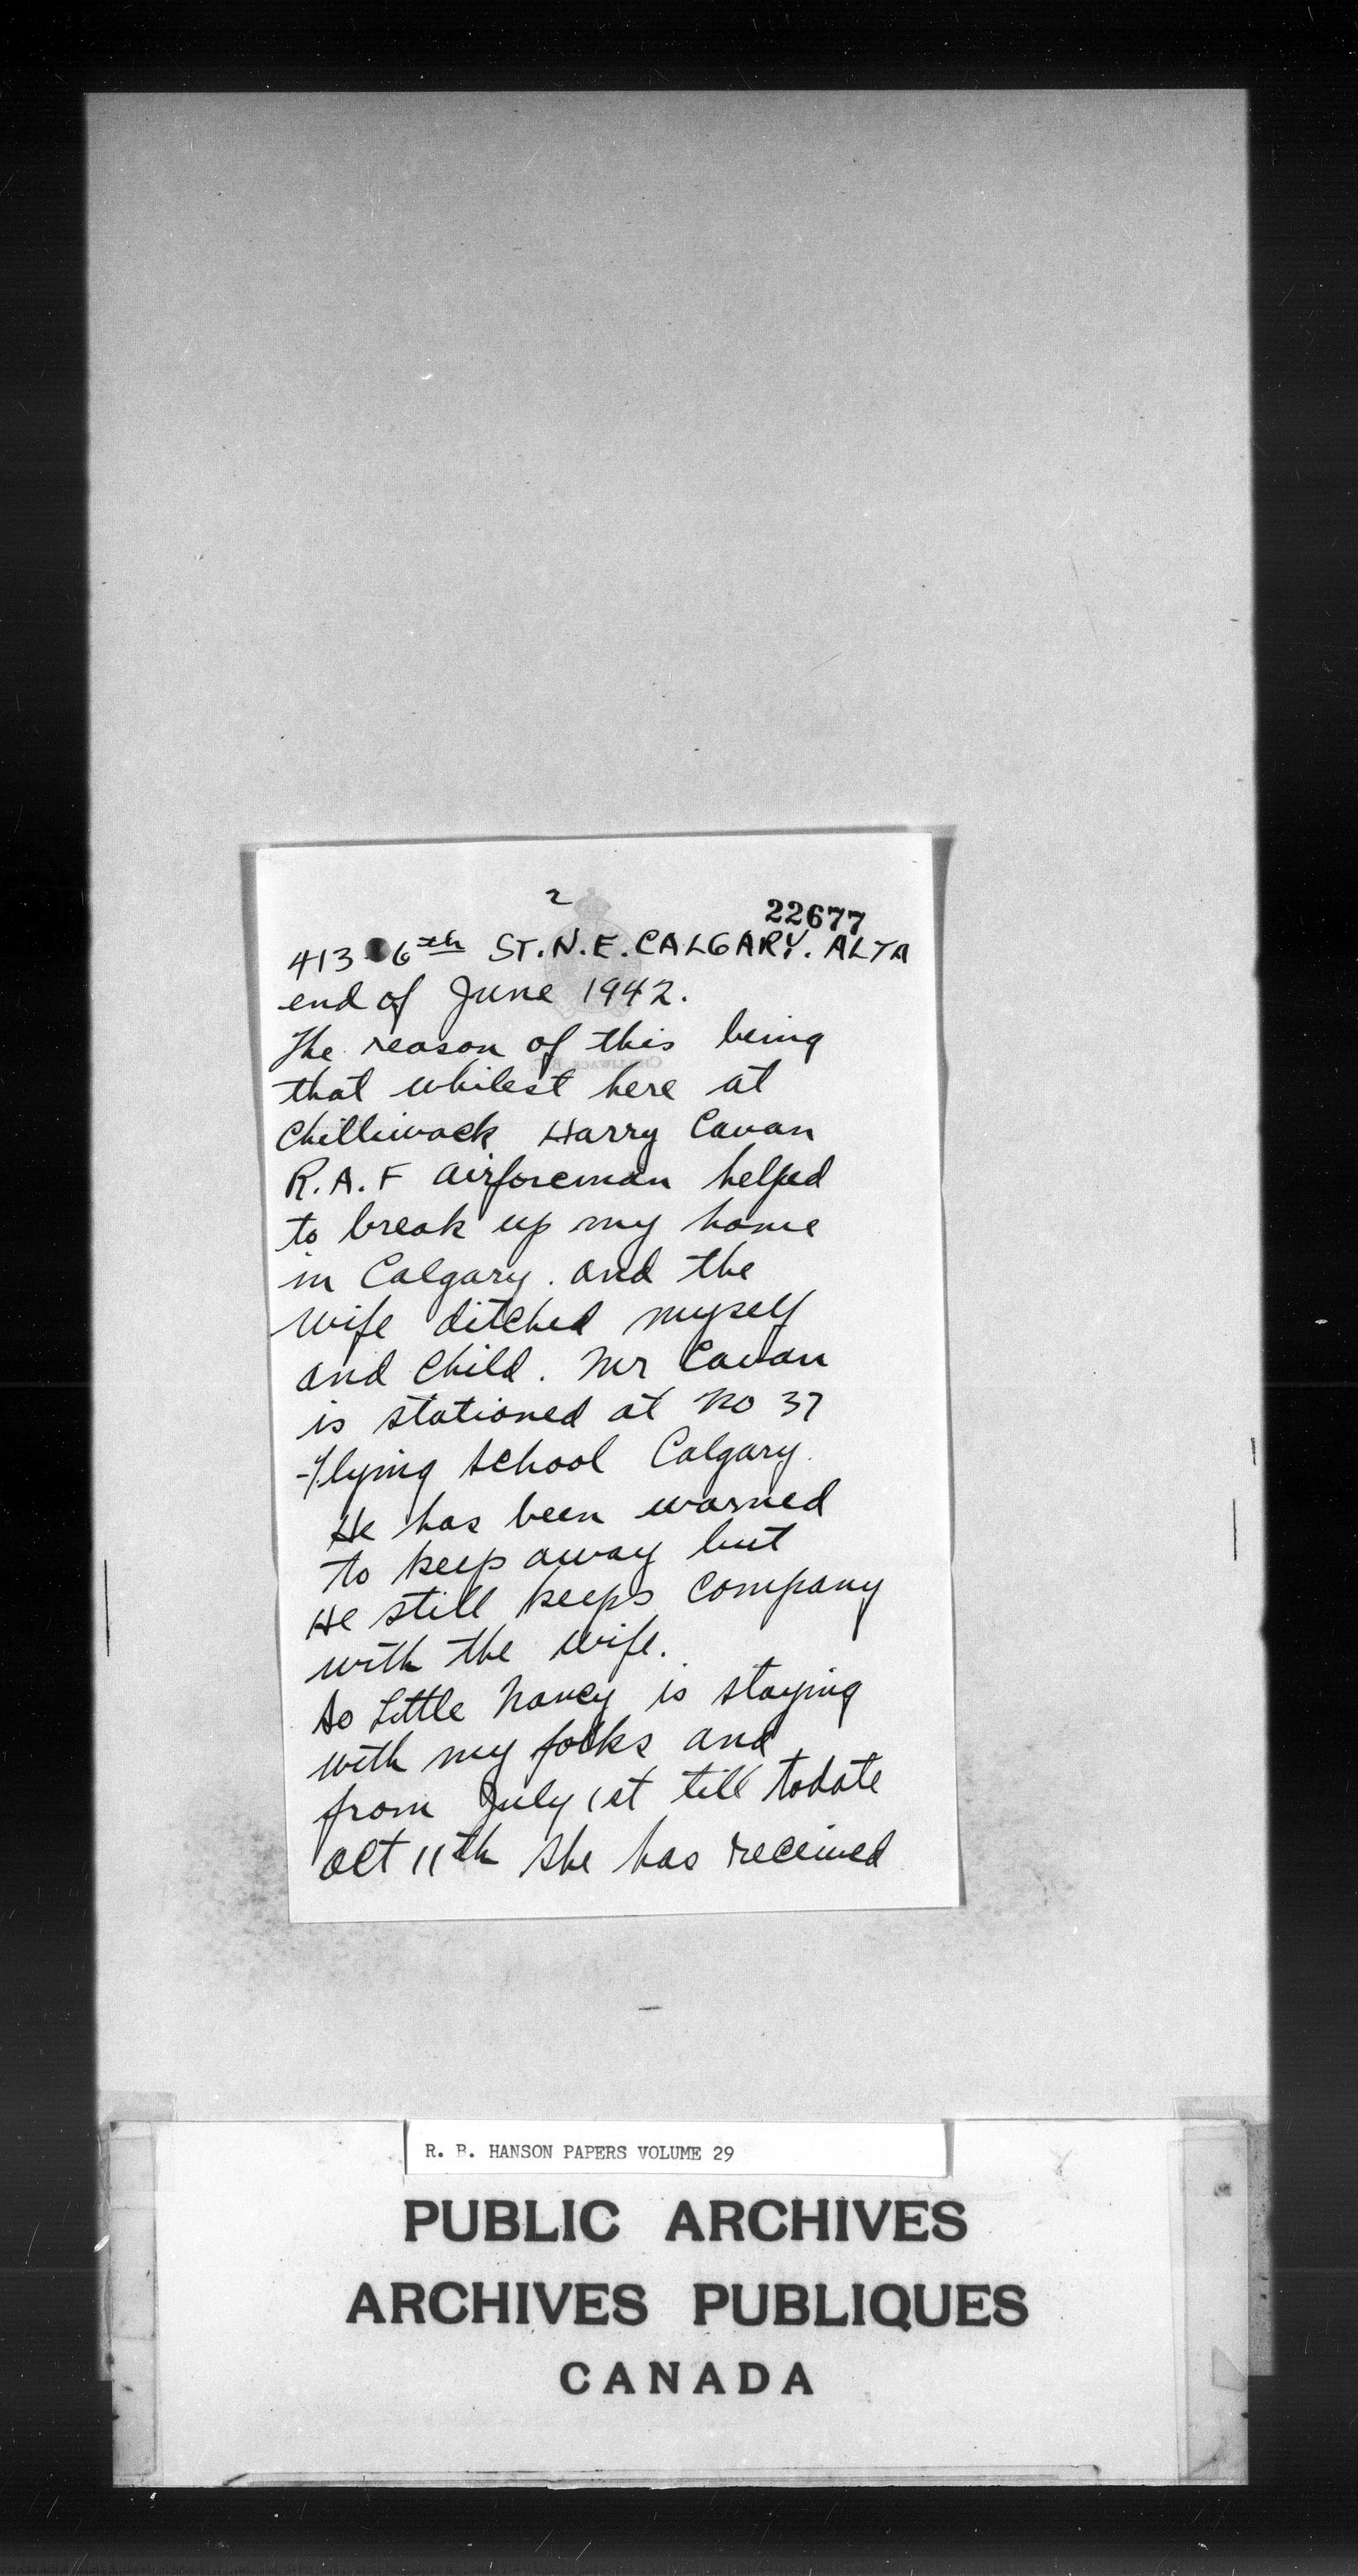 2
22677
413 6th ST. N. E. CALGARY. ALTA
end of June 1942.
The reason of this being
that whilest here at
Chilliwack Harry Cavan
R.A.F airforceman helped
to break up my home
in Calgary. and the
wife ditched myself
and Child. Mr Cavan
is stationed at No 37
Flying School Calgary.
He has been warned
to keep away but
He still keeps company
with the wife.
So Little Nancy is staying
with my folks and
from July 1st till todate
Oct 11th she has received
R. B. HANSON PAPERS VOLUME 29
PUBLIC ARCHIVES
ARCHIVES PUBLIQUES
CANADA